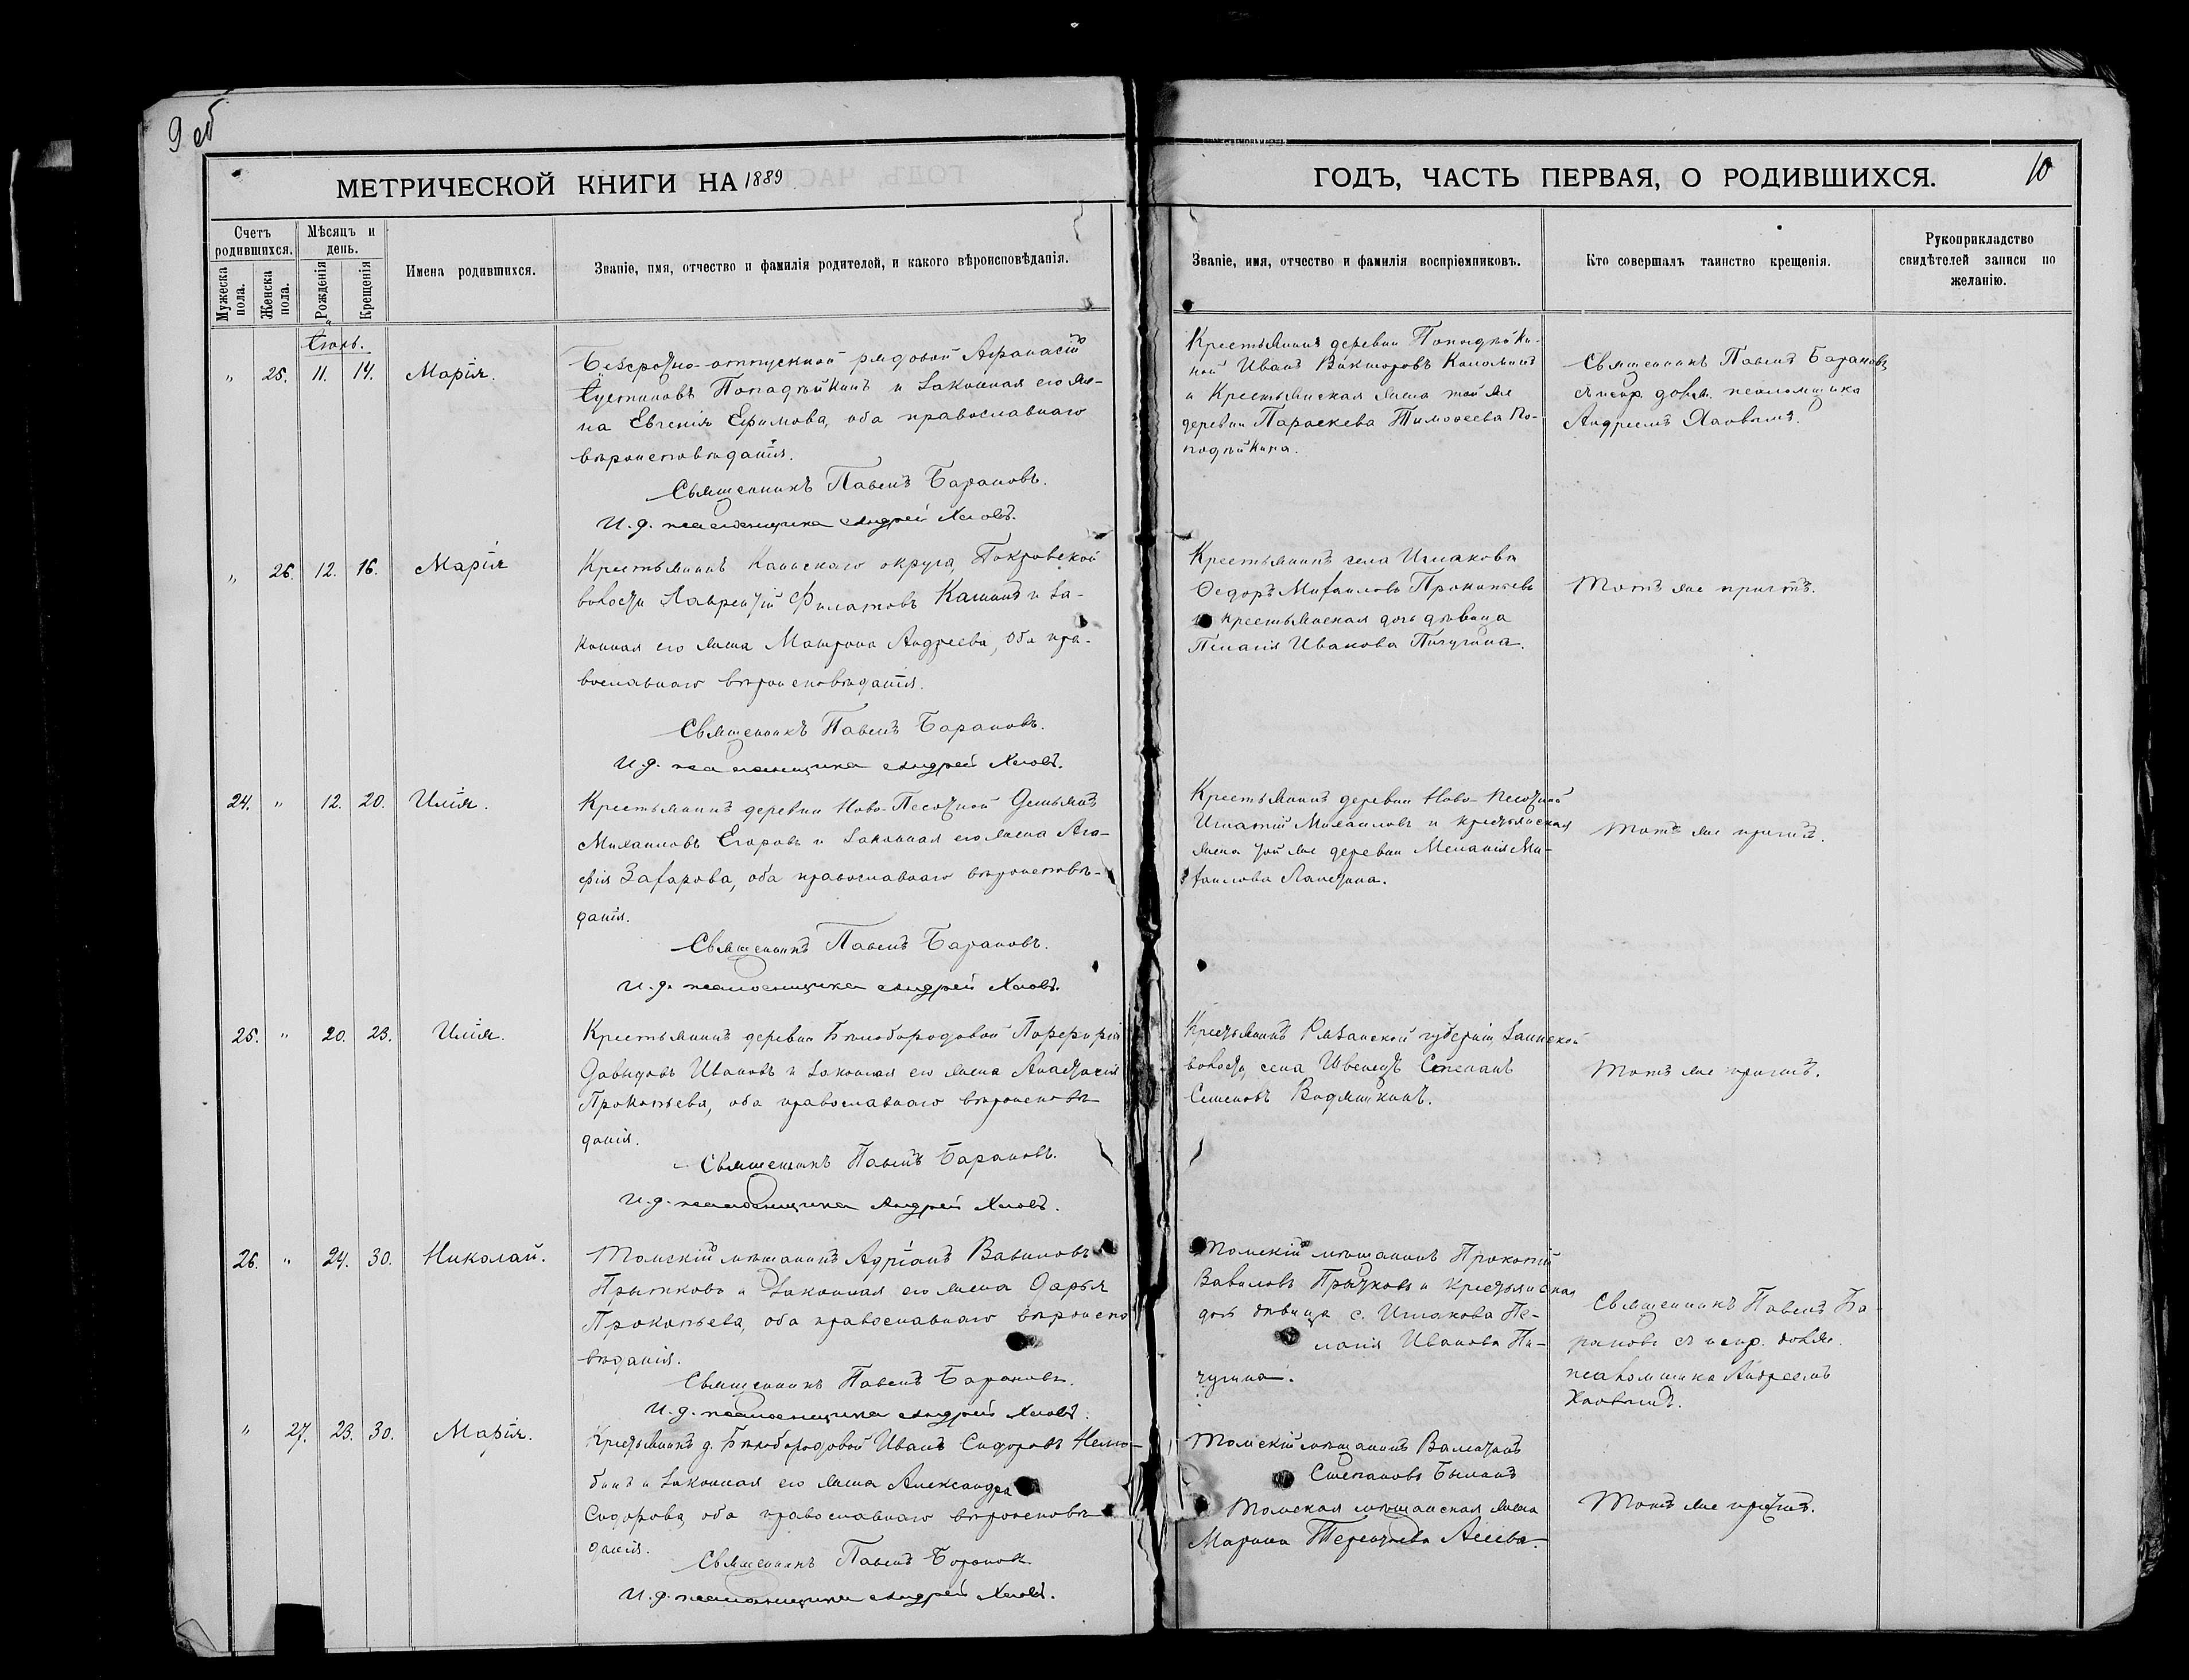 9 об
МЕТРИЧЕСКОЙ КНИГИ НА 1889
Счетъ родившихся.
Мужеска пола.
Женска пола.
Мѣсяцъ и день.
Рожденія
Крещенія
Имена родившихся.
Званіе, имя, отчество и фамилія родителей, и какого вѣроисповѣданія.
" 25. 11. 14. Марія.
Безсрочно-отпускной рядовой Афанасій
Іустиновъ Попадѣйкинъ и законная его же-
на Евгенія Ефимова, оба православнаго
вѣроисповѣданія.
Священникъ Павелъ Барановъ.
И. д. псаломщика Андрей
" 26. 12. 16. Марія
Крестьянинъ Каинскаго округа, Покровской
волости Лаврентій Филатовъ и за-
конная его жена Матрона Андреева, оба пра-
вославнаго вѣроисповѣданія.
Священникъ Павелъ Барановъ.
И. д. псаломщика Андрей
24. " 12. 20. Илія.
Крестьянинъ деревни Ново-Песочной Демьянъ
Михаиловъ Егоровъ и законная его жена Ага-
фія Захарова, оба православнаго вѣроисповѣ-
данія.
Священникъ Павелъ Барановъ.
И. д. псаломщика Андрей
25. " 20. 23. Илія.
Крестьянинъ деревни Бѣлобородовой Порфирій
Давидовъ Ивановъ и законная его жена Анастасія
Прокопьева, оба православнаго вѣроисповѣ
данія.
Священникъ Павелъ Барановъ.
И. д. псаломщика Андрей
26. " 24. 30. Николай.
Томскій мѣщанинъ Адріанъ Вавиловъ
Прытковъ и законная его жена Дарья
Прокопьева, оба православнаго вѣроиспо
вѣданія.
Священникъ Павелъ Барановъ.
И. д. псаломщика Андрей
" 27. 23. 30. Марія.
Крестьянинъ д. Бѣлобородовой Иванъ Сидоровъ
и законная его жена Александра
Сидорова, оба православнаго вѣроисповѣ
данія.
Священникъ Павелъ Барановъ.
И. д. псаломщика Андрей
ГОДЪ, ЧАСТЬ ПЕРВАЯ, О РОДИВШИХСЯ.
10
Званіе, имя, отчество и фамилія воспріемниковъ.
Кто совершалъ таинство крещенія.
Рукоприкладство свидѣтелей записи по желанію.
Крестьянинъ деревни Попадѣйки-
ной Иванъ Викторовъ
и Крестьянская жена той же
деревни Параскева Тимоѳеева По-
подѣйкина.
Священникъ Павелъ Барановъ
съ испр. долж. псаломщика
Андреемъ
Крестьянинъ села Ишакова
Ѳедоръ Михаиловъ Прокопьевъ
и крестьянская дочь дѣвица
Пелагія Иванова Пичугина.
Тотъ же причтъ.
Крестьянинъ деревни Ново-Песочной
Игнатій Михаиловъ и крестьянская
жена той же деревни Меланія Ми-
хаилова
Тотъ же причтъ.
Крестьянинъ Рязанской губерніи
волости, села Степанъ
Семеновъ
Тотъ же причтъ.
Томскій мѣщанинъ Прокопій
Вавиловъ Прытковъ и крестьянская
дочь дѣвица с. Ишакова Пе-
лагія Иванова Пи-
чугина.
Священникъ Павелъ Ба-
рановъ съ испр. долж.
псаломщика Андреемъ
Томскій мѣщанинъ
Степановъ
Томская мѣщанская жена
Марина Терентьева
Тотъ же причтъ.